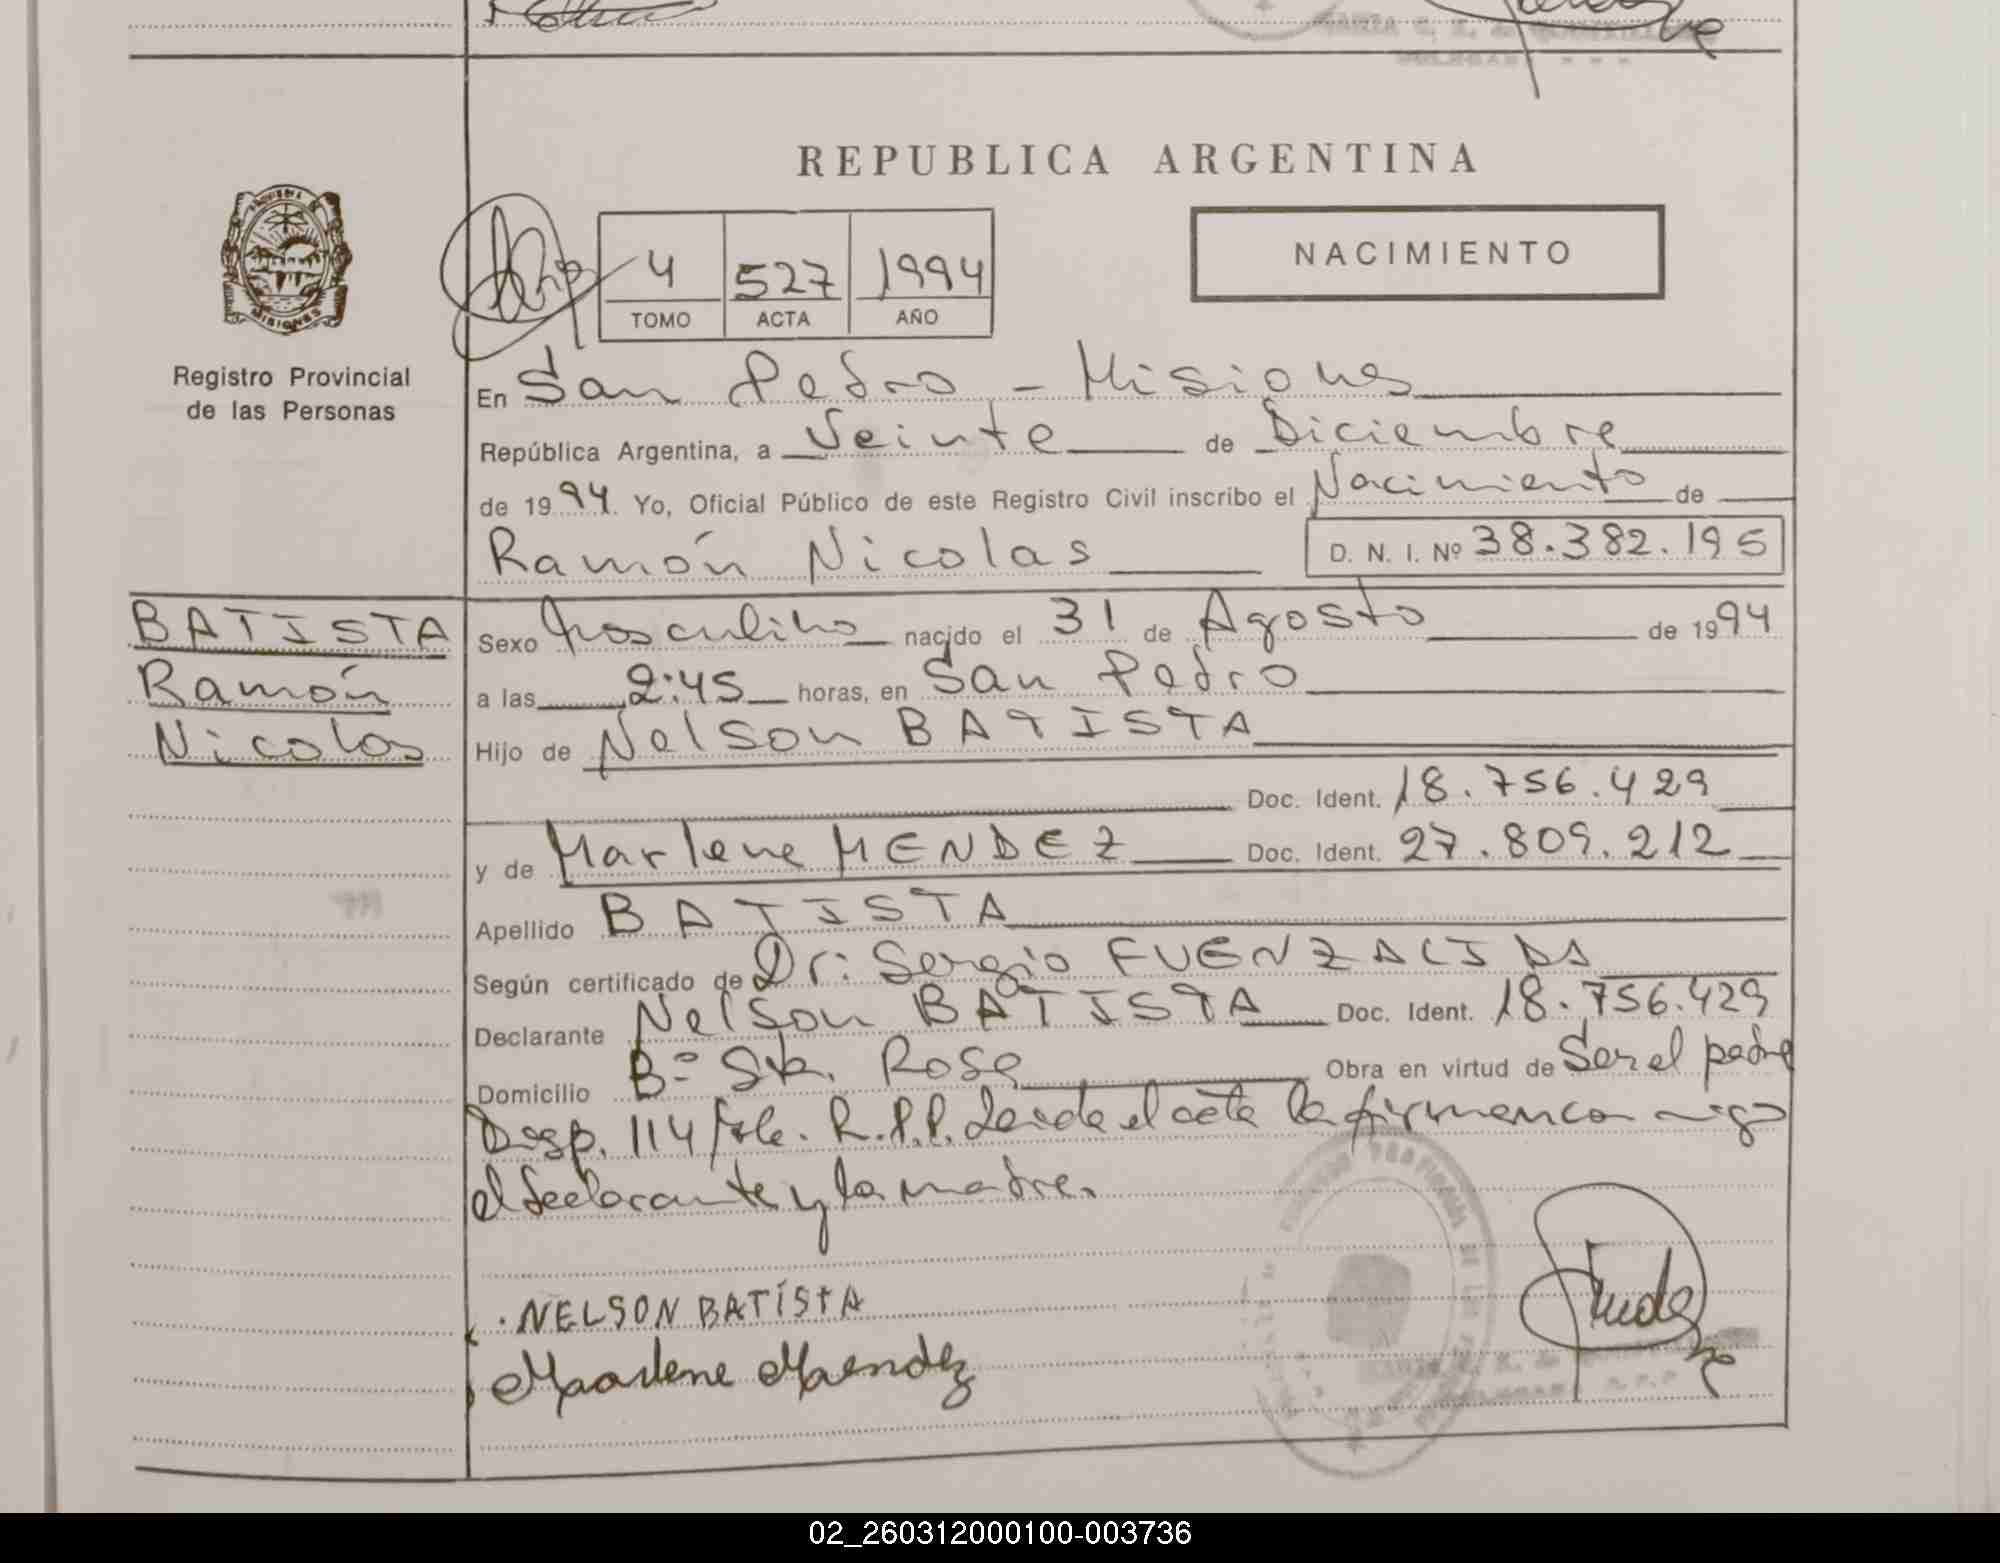 REPUBLICA ARGENTINA
NACIMIENTO
4 527 1994
TOMO ACTA AÑO
Registro Provincial
de las Personas
MISIONES
En San Pedro - Misiones
República Argentina, a Veinte de Diciembre
de 1994. Yo, Oficial Público de este Registro Civil inscribo el Nacimiento de
Ramón Nicolas D. N. I. Nº 38.382.195
BATISTA
Ramón
Nicolas
Sexo Masculino nacido el 31 de Agosto de 1994
a las 2:45 horas, en San Pedro
Hijo de Nelson BATISTA
Doc. Ident. 18.756.429
y de Marlene MENDEZ Doc. Ident. 27.809.212
Apellido BATISTA
Según certificado de Dr: Sergio FUENZALIDA
Declarante Nelson BATISTA Doc. Ident. 18.756.429
Domicilio Bº Sta. Rosa Obra en virtud de Ser el padre
Disp. 114 R.P.P. Leida el acta la firman conmigo
el declarante y la madre.
NELSON BATISTA
Maarlene Maendez
02_260312000100-003736